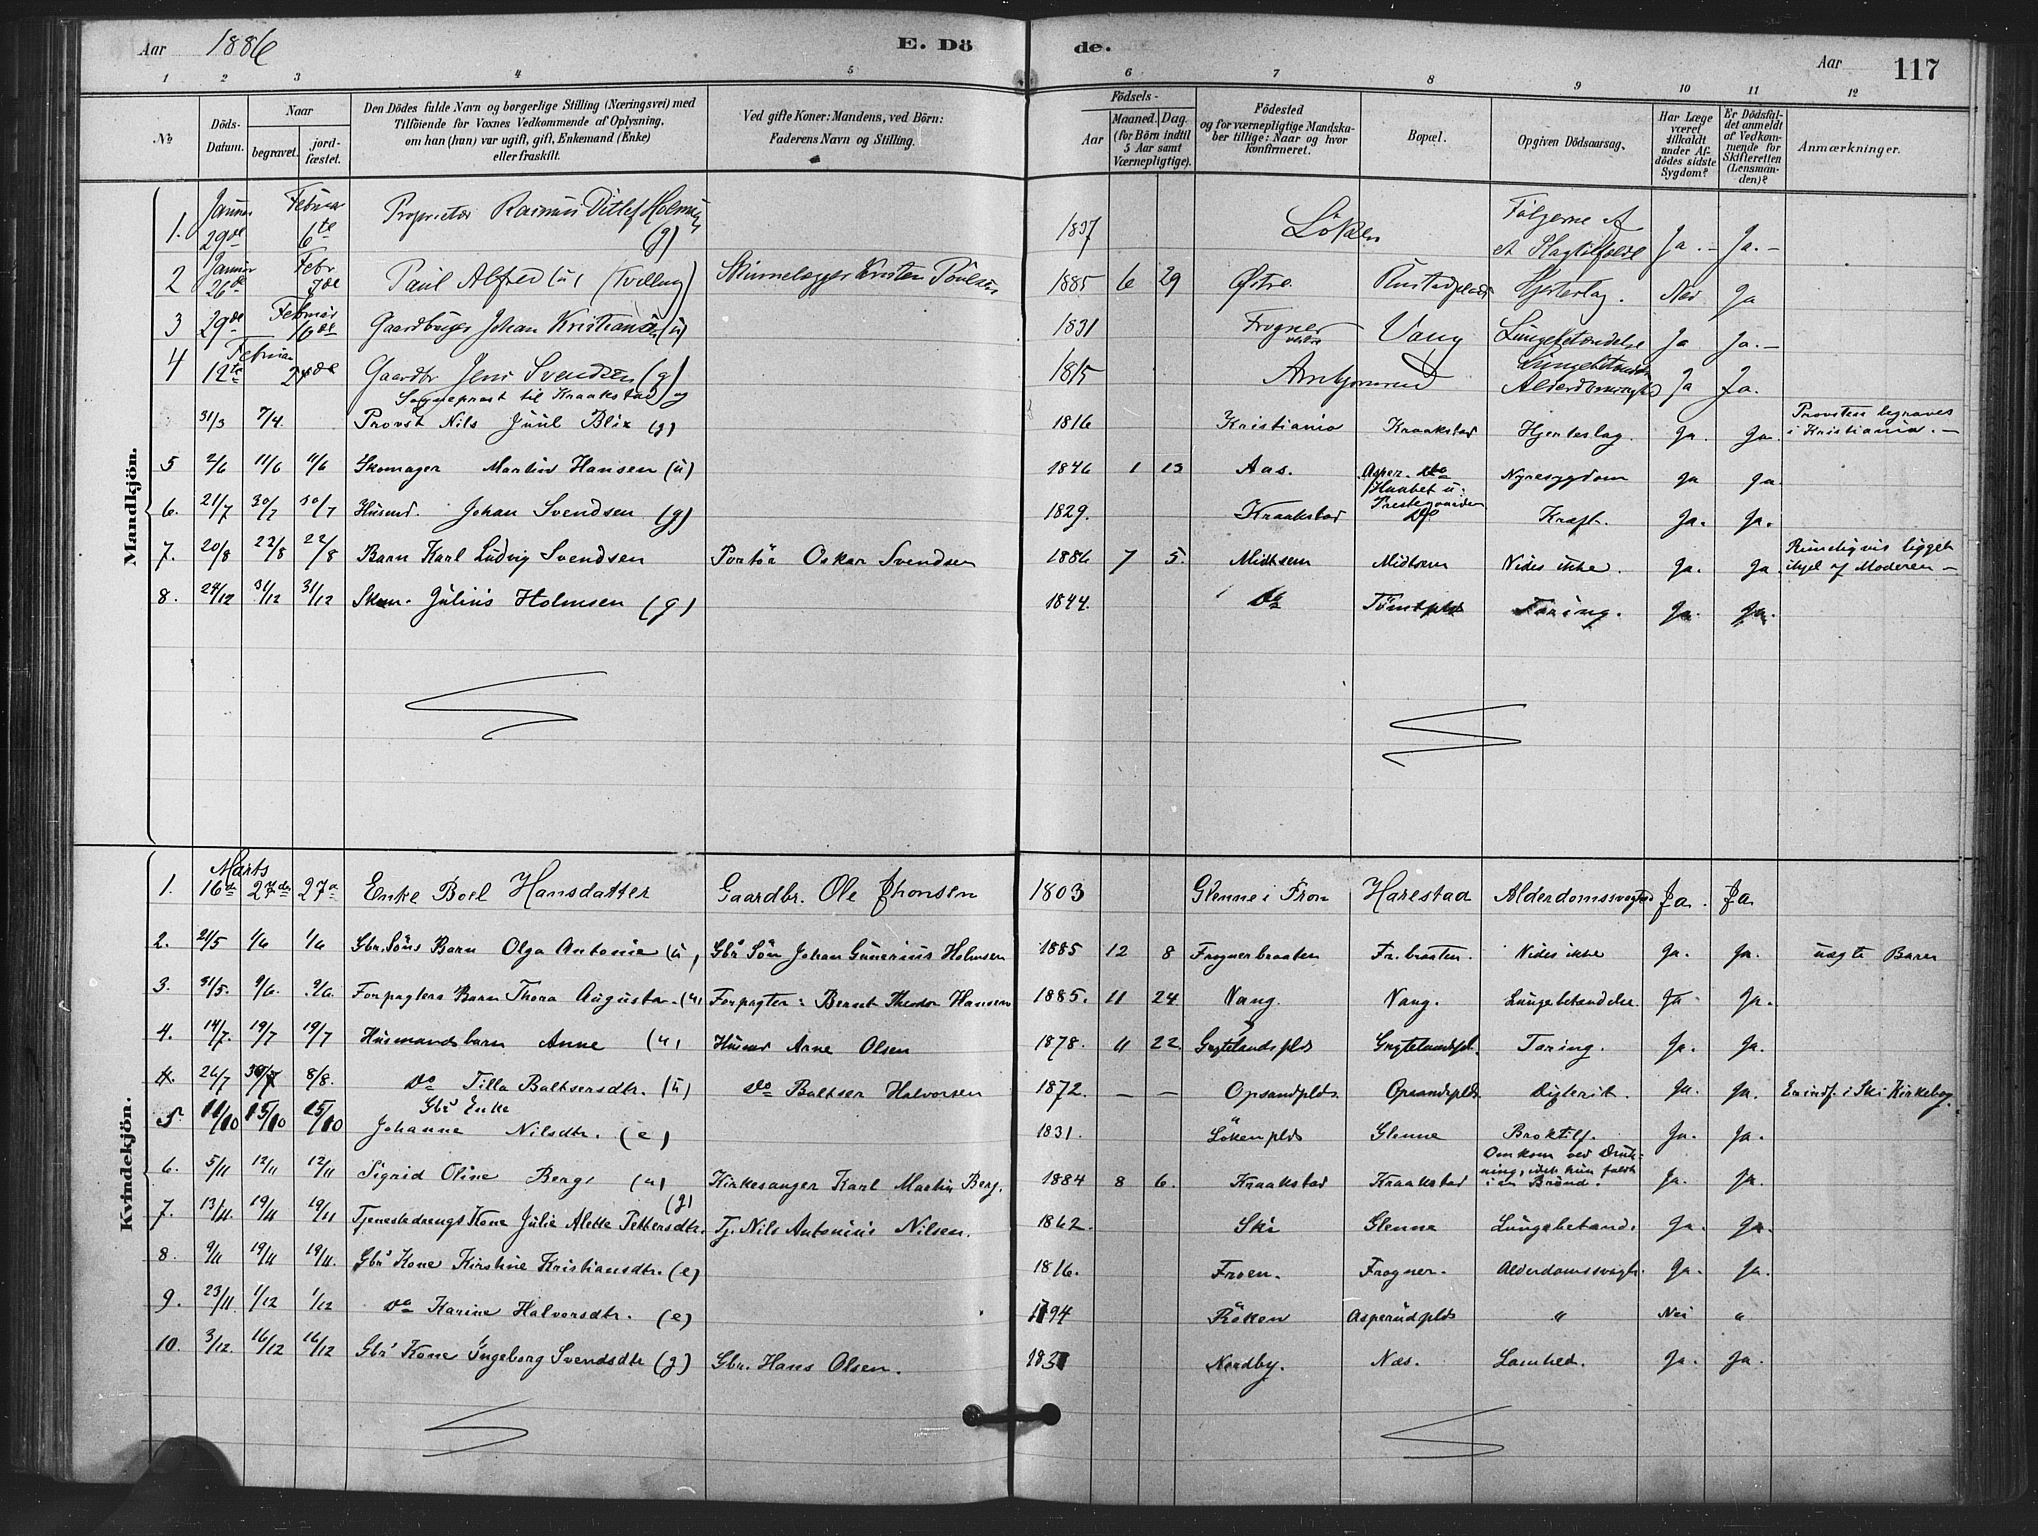 Aar 1886 E. Dö de. Aar 117
1 2 3 4 5 6 7 8 9 10 11 12
No
Döds-Datum.
Naar
begravet.
jord-fæstet.
Den Dödes fulde Navn og borgerlige Stilling (Næringsvei) med
Tilföiende for Voxnes Vedkommende af Oplysning,
om han (hun) var ugift, gift, Enkemand (Enke)
eller fraskilt.
Ved gifte Koner: Mandens, ved Börn:
Faderens Navn og Stilling.
Födsels-
Aar
Maaned. Dag.
(for Börn indtil
5 Aar samt
Værnepligtige).
Födested
og for værnepligtige Mandska-
ber tillige: Naar og hvor
konfirmeret.
Bopæl.
Opgiven Dödsaarsag.
Har Læge
været
tilkaldt
under Af-
dödes sidste
Sygdom?
Er Dödsfal-
det anmeldt
af Vedkom-
mende for
Skifteretten
(Lensman-
den)?
Anmærkninger.
Mandkjön.
1. Januar 29de Februar 6te Proprietær Rasmus Ditlef Holmsen (g) 1837 Löken Fölgerne af et Slagtilfælde Ja.- Ja.-
2 Januar 26de Febr 7de Paul Alfred (u) (Tvilling) Skinnelægger Kristen Poulsen 1885 6 29 Østre Rustadplads Hjerteslag. Nei Ja
3 29de Februar 10de Gaardbruger Johan Kristiansen (u) 1831 Frogner Vang Lungebetændelse Ja Ja.-
4 Februar 12te 24de Gaardbr Jens Svendsen (g) 1815 Lungebetændelse Alderdomsvagh Ja Ja.
Sogneprest til Kraakstad og
31/3 7/4. Provst Nils Juul Blix (g) 1816 Kristiania Kraakstad Hjerteslag. Ja. Ja. Provsten begraves
i Kristiania.-
5 2/6 11/6 11/6 Skomager Martin Hansen (u) 1846 1 13 Aas. Nyresygdom Ja Ja.
6. 21/7 30/7 30/7 Husmd. Johan Svendsen (g) 1829. Kraakstad Haabet u. Prestegaarden Kræft. Ja. Ja.
7. 20/8 22/8 22/8 Barn Karl Ludvig Svendsen Portör Oskar Svendsen 1886 7 5. Midtsem Midtsem Vides ikke. Ja. Ja. Rimeligvis ligget
ihjel af Moderen-
8. 24/12 31/12 31/12 Skom. Julius Holmsen (g) 1844. do Tæring. Ja. Ja.
Kvindekjön.
1. Marts 16de 27de 27de Enke Boel Hansdatter Gaardbr. Ole Jhonsen 1803 Glenne i Fron Harestad Alderdomssvaghed Ja. Ja
2. 21/5 1/6 1/6 Gbr. Söns Barn Olga Antonie (u) Gbr Sön Johan Gunerius Holmsen 1885 12 8 Frognerbraaten Fr. braaten. Vides ikke Ja. Ja. uægte Barn
3. 31/5. 9/6. 9/6. Forpagters Barn Thora Augusta. (u) Forpagter: Bernt Theodor Hansen 1885. 11 24 Vang. Vang. Lungebetændelse. Ja. Ja.
4. 14/7. 19/7 19/7 Husmandsbarn Anne (u) Husmd Arne Olsen 1878. 11 22 Grytelandspls Grytelandspl. Tæring. Ja. Ja.
4. 26/7 30/7 8/8. do Tilla Baltsersdtr. (u) do Baltser Halvorsen 1872. — — Opsandplds. Opsandplds. Difterit. Ja. Ja. Er indf. i Ski Kirkebog.
Gbr Enke
5. 11/10 15/10 15/10 Johanne Nilsdtr. (e) 1831. Lökenplds Glenne Broktilf. Ja. Ja.
6. 5/11 12/11 12/11 Sigrid Oline Berg, (u) Kirkesanger Karl Martin Berg. 1884 8 6. Kraakstad Kraakstad Omkom ved Druk-
ning, idet hun faldt
i en Brönd. Ja. Ja.
7. 13/11. 19/11 19/11 Tjenestedrengs Kone Julie Alette Pettersdtr. (g) Tj. Nils Antonius Nilsen. 1862. Ski Glenne Lungebetænd. Ja. Ja.
8. 9/11 19/11 19/11. Gbr Kone Kirstine Kristiansdtr. (e) 1816. Froen. Frogner. Alderdomssvagh. Ja. Ja.
9. 23/11. 1/12 1/12 do Karine Halvorsdtr. (e) 1794 Röken Asperudplds " Nei "
10. 3/12. 16/12 16/12 Gbr Kone Ingeborg Svendsdtr (g) Gbr. Hans Olsen. 1837 Nordby. Næs. Lamhed. Ja. Ja.